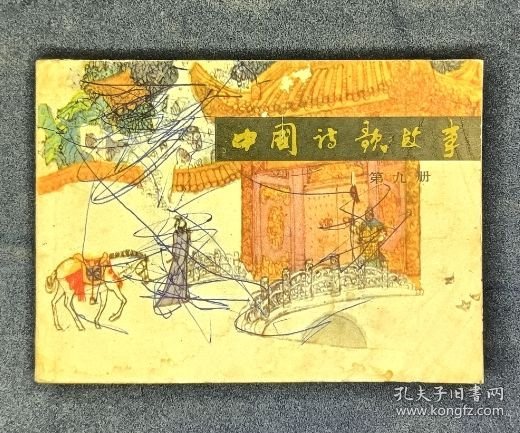 中國诗歌故事
第九册
孔夫子旧书网
www.kongfz.com